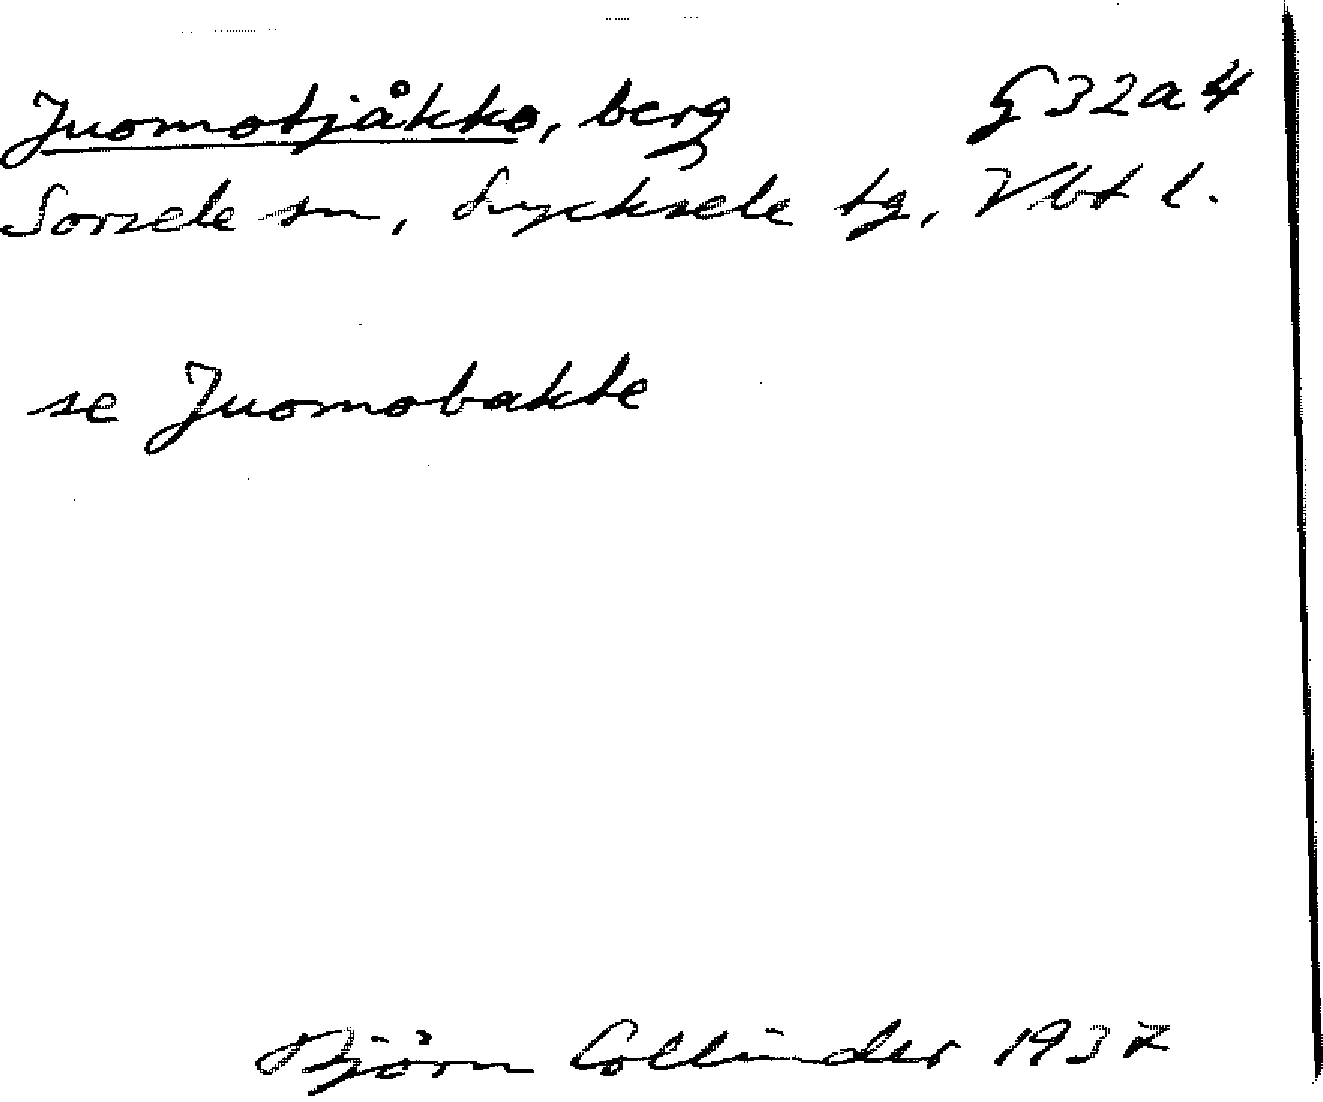 Juomotjåkko, berg G32a4
Sorsele sn, Lycksele tg, Vbt l.
se Juomobakte
Björn Collinder 1937